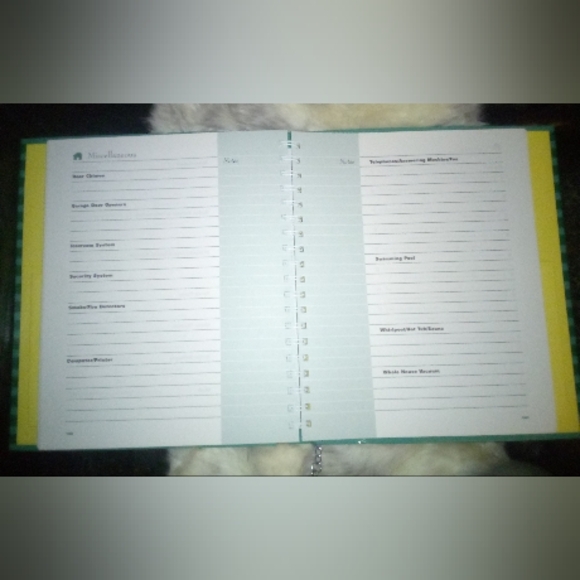 Miscellaneous
Notes
Door Chimes
Garage Door Openers
Intercom System
Security System
Smoke/Fire Detectors
Computer/Printer
Notes
Telephone/Answering Machine/Fax
Swimming Pool
Whirlpool/Hot Tub/Sauna
Whole House Vacuum